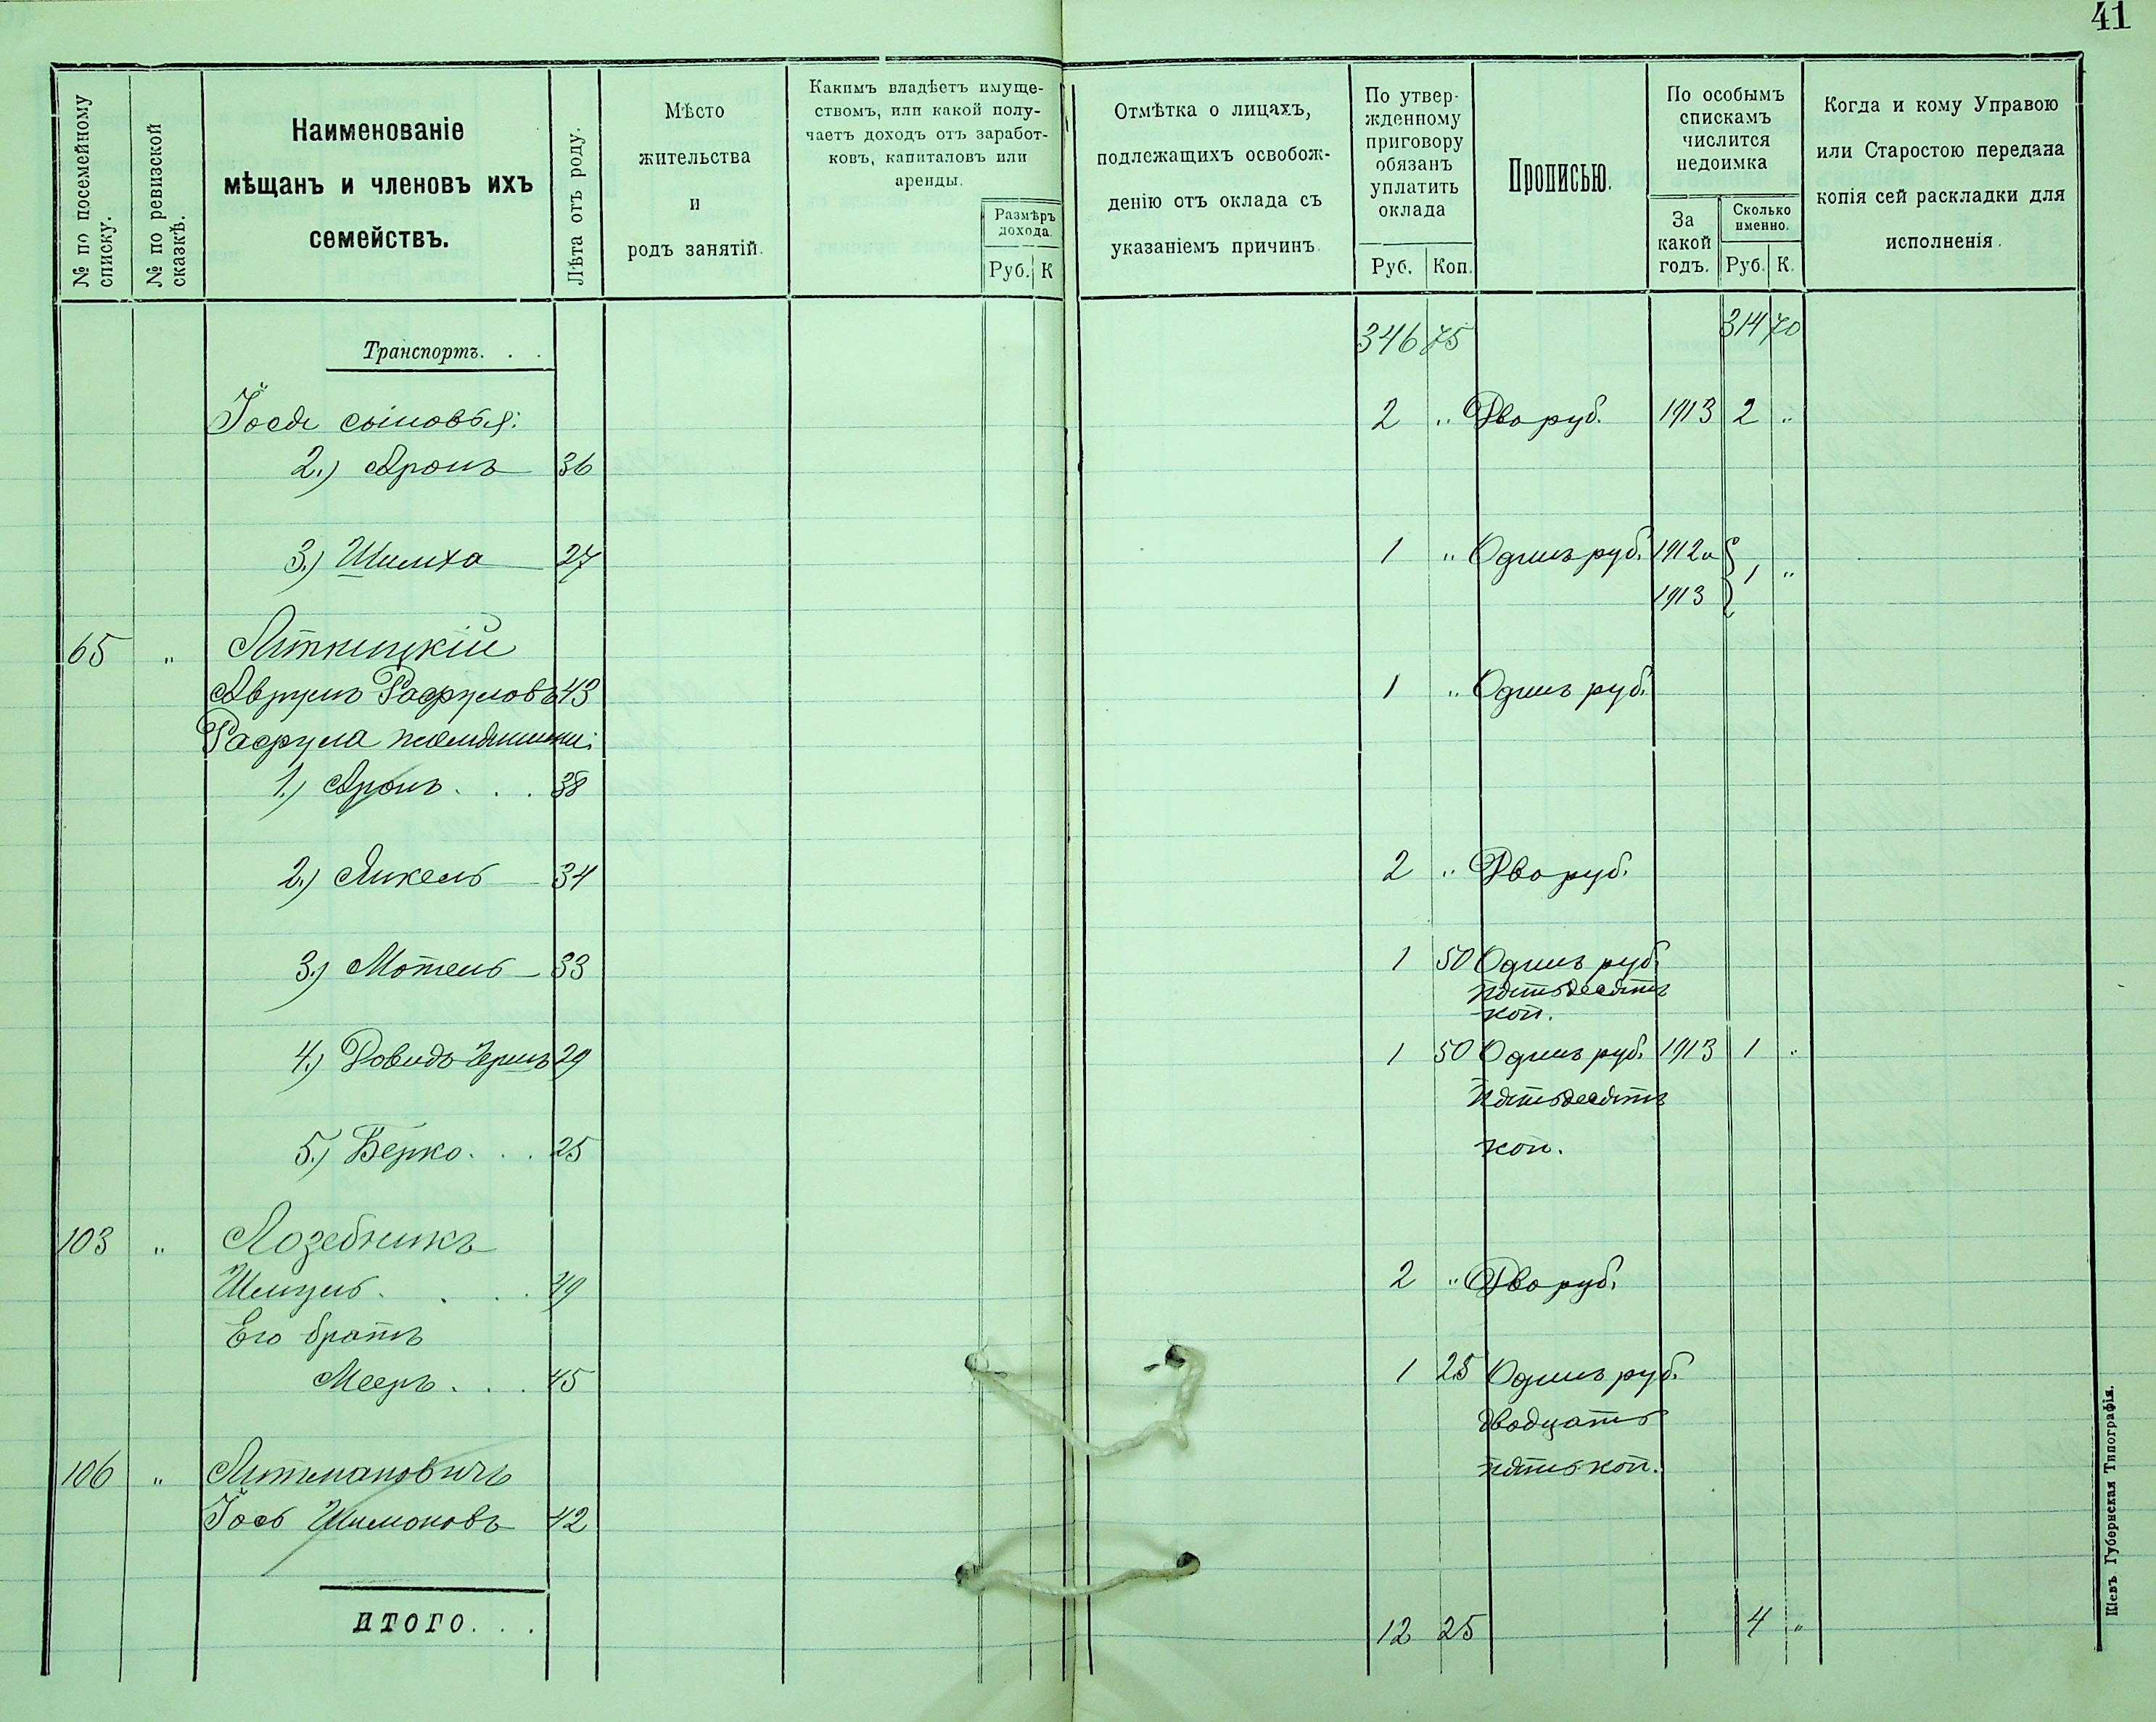 41
№ по посемейному списку.
№ по ревизской сказкѣ.
Наименованіе
мѣщанъ и членовъ ихъ
семействъ.
Лѣта отъ роду.
Мѣсто
жительства
и
родъ занятій.
Какимъ владѣетъ имуще-
ствомъ, или какой полу-
чаетъ доходъ отъ заработ-
ковъ, капиталовъ или
аренды.
Размѣръ
дохода.
Руб. К
Отмѣтка о лицахъ,
подлежащихъ освобож-
денію отъ оклада съ
указаніемъ причинъ.
По утвер-
жденному
приговору
обязанъ
уплатить
оклада
Руб. Коп.
Прописью.
По особымъ
спискамъ
числится
недоимка
За
какой
годъ.
Сколько
именно.
Руб. К.
Когда и кому Управою
или Старостою передана
копія сей раскладки для
исполненія.
Транспортъ. . . 346 75 314 70
Іося сыновья: 2 " Два руб. 1913 2 "
2.) Аронъ 36
3.) Шимха 27 1 " Одинъ руб. 1912 и
1913 1 "
65 " Литницкій
Аврумъ Рафуловъ 43 1 " Одинъ руб.
Рафула племянники:
1.) Аронъ . . . 38
2.) Янкель 34 2 " Два руб.
3.) Мотель 33 1 50 Одинъ руб.
пятьдесятъ
коп.
4.) Довидъ Гершъ 29 1 50 Одинъ руб. 1913 1 "
пятьдесятъ
5.) Берко . . . 25 коп.
103 " Лозебникъ
Шмуль . . . . 49 2 " Два руб.
Его братъ
Мееръ . . . 45 1 25 Одинъ руб.
двадцать
106 " Литмановичъ пять коп.
Іось Шимоновъ 42
ИТОГО. . . 12 25 4 "
Кіевъ. Губернская Типографія.